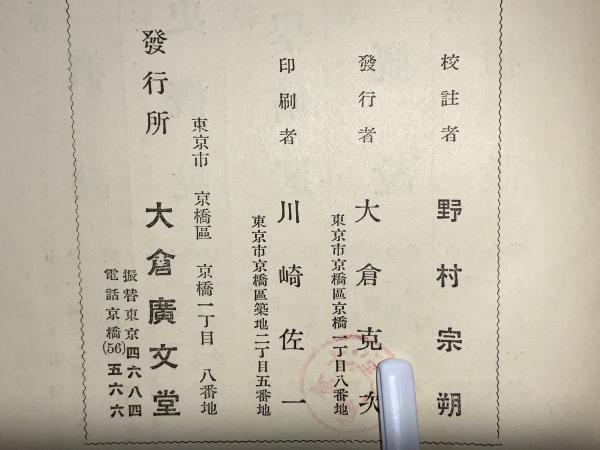 校註者 野村宗朔
發行者 大倉克次
東京市京橋區京橋一丁目八番地
印刷者 川崎佐一
東京市京橋區築地二丁目五番地
東京市 京橋區 京橋一丁目 八番地
發行所 大倉廣文堂
振替東京四六八四
電話京橋(56)五六六